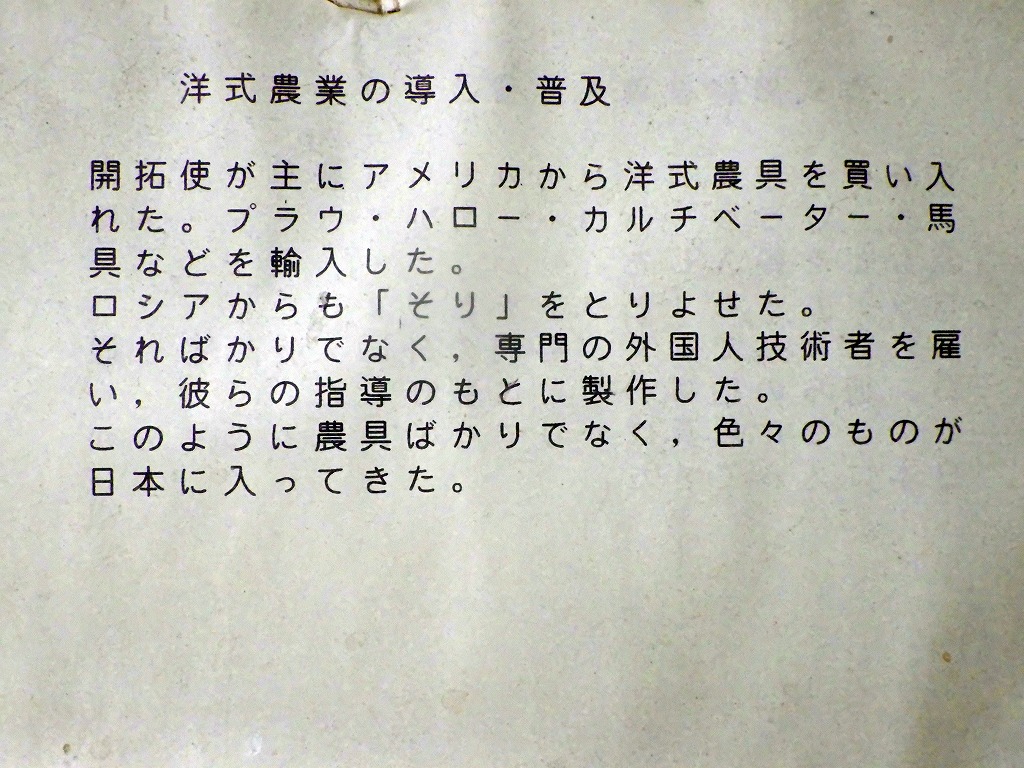 洋式農業の導入・普及
開拓使が主にアメリカから洋式農具を買い入
れた。プラウ・ハロー・カルチベーター・馬
具などを輸入した。
ロシアからも「そり」をとりよせた。
そればかりでなく，専門の外国人技術者を雇
い，彼らの指導のもとに製作した。
このように農具ばかりでなく，色々のものが
日本に入ってきた。